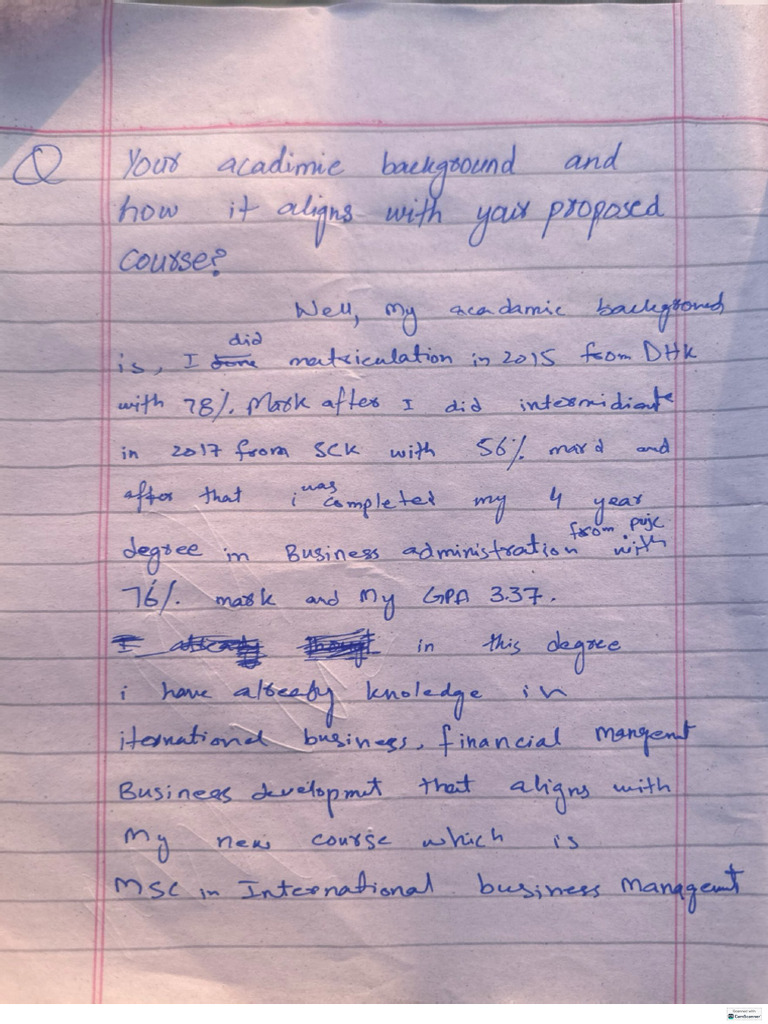 Q Your acadimic background and
how it aligns with your proposed
course?
Well, My acadamic background
is, I did matriculation in 2015 from DHK
with 78%. Mark after I did intermidiate
in 2017 from SCK with 56% mar'd and
after that i was completed my 4 year
degree in Business administration from pujc with
76%. mark and My GPA 3.37.
in this degree
i have already knoledge in
iternational business, financial mangemt
Business developmut that aligns with
My new course which is
MSC in International business Managemt
Scanned with
CamScanner